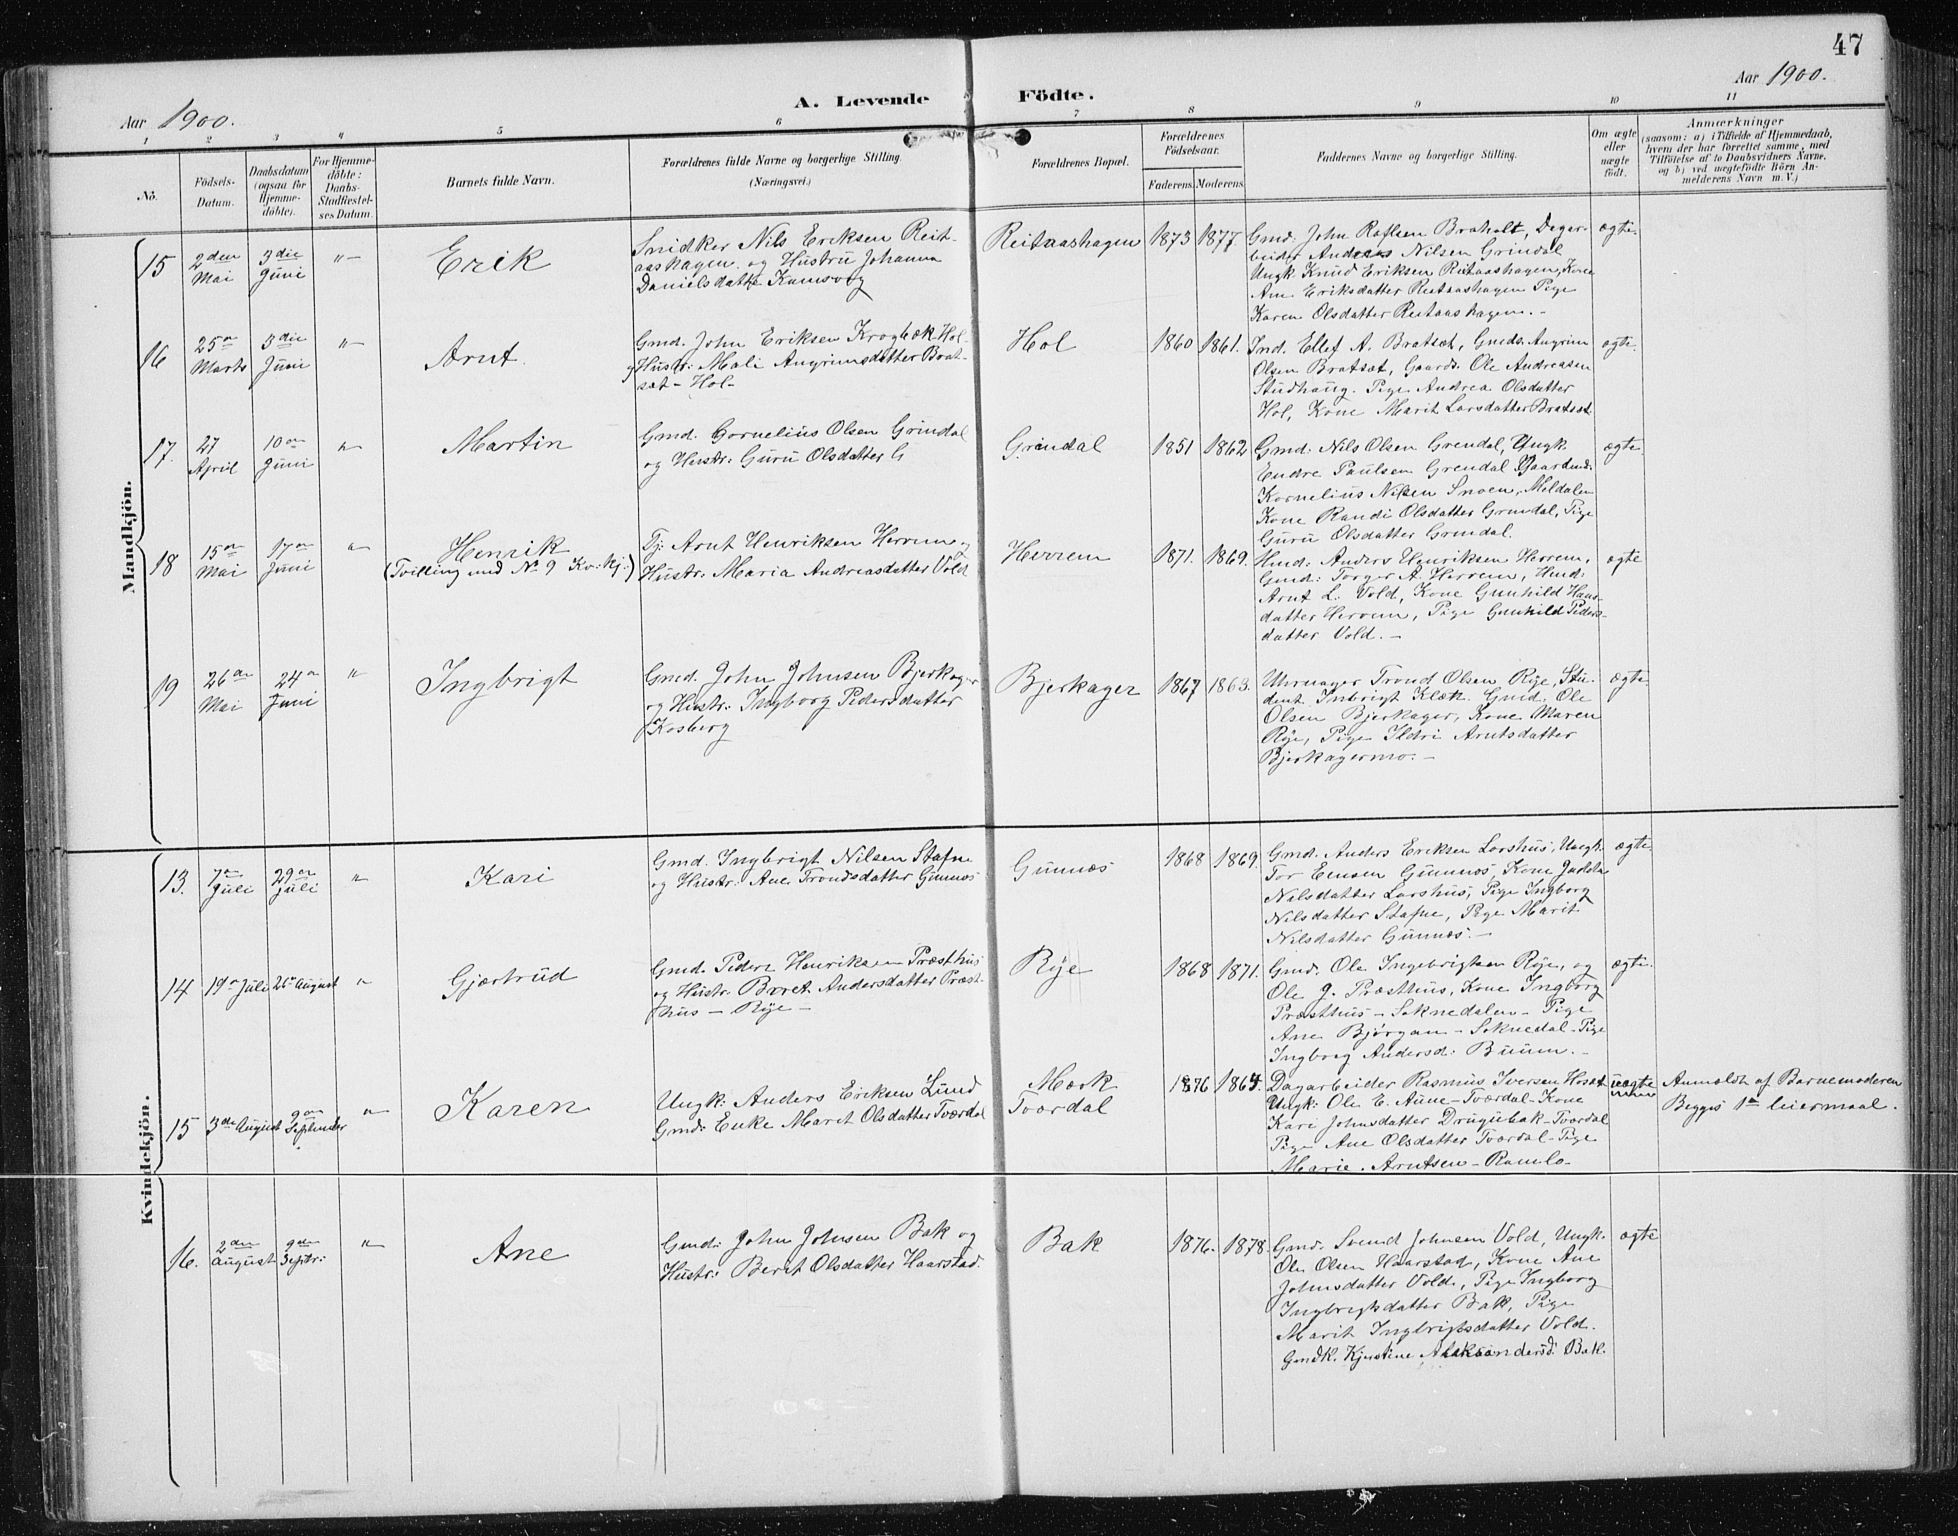 47
Aar 1900.
A. Levende Födte.
Aar 1900.
1 2 3 4 5 6 7 8 9 10 11
No.
Födsels-
Datum.
Daabsdatum
(ogsaa for
Hjemme-
döbte).
For Hjemme-
döbte:
Daabs-
Stadfæstel-
ses Datum.
Barnets fulde Navn.
Forældrenes fulde Navne og borgerlige Stilling.
(Næringsvei.)
Forældrenes Bopæl.
Forældrenes
Födselsaar.
Faderens. Moderens.
Faddernes Navne og borgerlige Stilling.
Om ægte
eller
uægte
födt.
Anmærkninger
(saasom: a) i Tilfælde af Hjemmedaab,
hvem der har forrettet samme, med
Tilföielse af to Daabsvidners Navne,
og b) ved uægtefödte Börn An-
melderens Navn m. V.)
Mandkjön.
15
2den
Mai
3die
Juni
"
Erik
Snidker Nils Eriksen Reit-
aashagen og Hustru Johanna
Danielsdatte Kamsvog
Reitaashagen
1873
1877.
Gmd. John Roflsen Braholt, Dagar-
beider Anders Nilsen Grindal
Ungk Knud Eriksen Reitaashagen, Kone
Ane Eriksdatter Reitaashagen Pige
Karen Olsdatter Reitaashagen.
ægte
16
25de
Marts
3die
Juni
"
Arnt.
Gmd. John Eriksen Krogbæk Hol-
og Hustr: Mali Angrimsdatter Brat-
sæt - Hol-
Hol
1860
1861.
Ind. Ellef A. Bratsæt, Gmds. Angrim
Olsen Bratsæt, Gaardb. Ole Andreasen
Studhaug. Pige Andrea Olsdatter
Hol, Kone Marit Larsdatter Bratsæt
ægte.
17.
27
April
10de
Juni
"
Martin
Gmd. Cornelius Olsen Grindal
og Hustr: Guru Olsdatter G
Grindal
1851
1862
Gmd: Nils Olsen Grendal, Ungk
Endre Paulsen Grendal Gaardmd.
Kornelius Nilsen Snoen, Meldalen
Kone Randi Olsdatter Grindal, Pige
Guru Olsdatter Grindal.
ægte
18
15de
Mai
17de
Juni
"
Henrik
(Tvilling med No 9 Kv: kj:)
Tj: Arnt Henriksen Herrem og
Hustr: Maria Andreasdatter Vold
Herrem
1871.
1869.
Hmd: Anders Henriksen Herrem,
Gmd: Torger A. Herrem, Hmd:
Arnt L. Vold, Kone Gunhild Hans-
datter Herrem, Pige Gunhild Peders-
datter Vold. -
ægte
19
26de
Mai
24de
Juni
"
Ingbrigt
Gmd. John Johnsen Bjerkager
og Hustr: Ingborg Pedersdatter
Kosberg
Bjerkager
1867
1863.
Uhrmager Trond Olsen Rye, Stu-
dent Inbrigt Klæth Gmd. Ole
Olsen Bjerkager, Kone Maren
Rye, Pige Ildri Arntsdatter
Bjerkagermo. -
ægte
Kvindekjön.
13.
7de
Juli
29de
Juli
"
Kari
Gmd. Ingbrigt Nilsen Stafne
og Hustr: Ane Trondsdatter Gunnes
Gunnæs
1868
1869.
Gmd. Anders Eriksen Lorshus, Ungk.
Tor Eensen Gunnæs, Kone
Nilsdatter Lorshus, Pige Ingborg
Nilsdatter Stafne, Pige Marit
Nilsdatter Gunnes. -
ægte
14
19de Juli
26de August
"
Gjertrud
Gmd. Peder Henriksen Præsthus
og Hustr. Beret Andersdatter Præst-
hus - Rye -
Rye
1868
1871.
Gmd. Ole Ingebrigtsen Rye, og
Ole J. Præsthus, Kone Ingborg
Præsthus - Soknedalen - Pige
Ane Bjørgan - Soknedal - Pige
Ingborg Andersd: Buum. -
ægte.
15
3die August
9de
September
"
Karen
Ungk: Anders Eriksen Lund
Gmds Enke Maret Olsdatter Tværdal
Mærk
Tværdal
1876
1864.
Dagarbeider Rasmus Iversen Hosæt
Ungk: Ole E. Aune - Tværdal - Kone
Kari Johnsdatter Drugubak - Tværdal
Pige Ane Olsdatter Tværdal - Pige
Marie Arntsen - Ramlo -
uægte
Anmeldt af Barnemoderen
Begges 1ste leiermaal.
16.
2den
August
9de
Septr:
"
Ane
Gmd: John Johnsen Bak og
Hustr: Berit Olsdatter Haarstad.
Bak
1876.
1878.
Gmd. Svend Johnsen Vold, Ungk.
Ole Olsen Haarstad, Kone Ane
Johnsdatter Vold, Pige Ingborg
Ingbrigtsdatter Bak, Pige
Marit Ingbrigtsdatter Vold.
Gmdk. Kjerstine Aleksandersd: Bak.
ægte